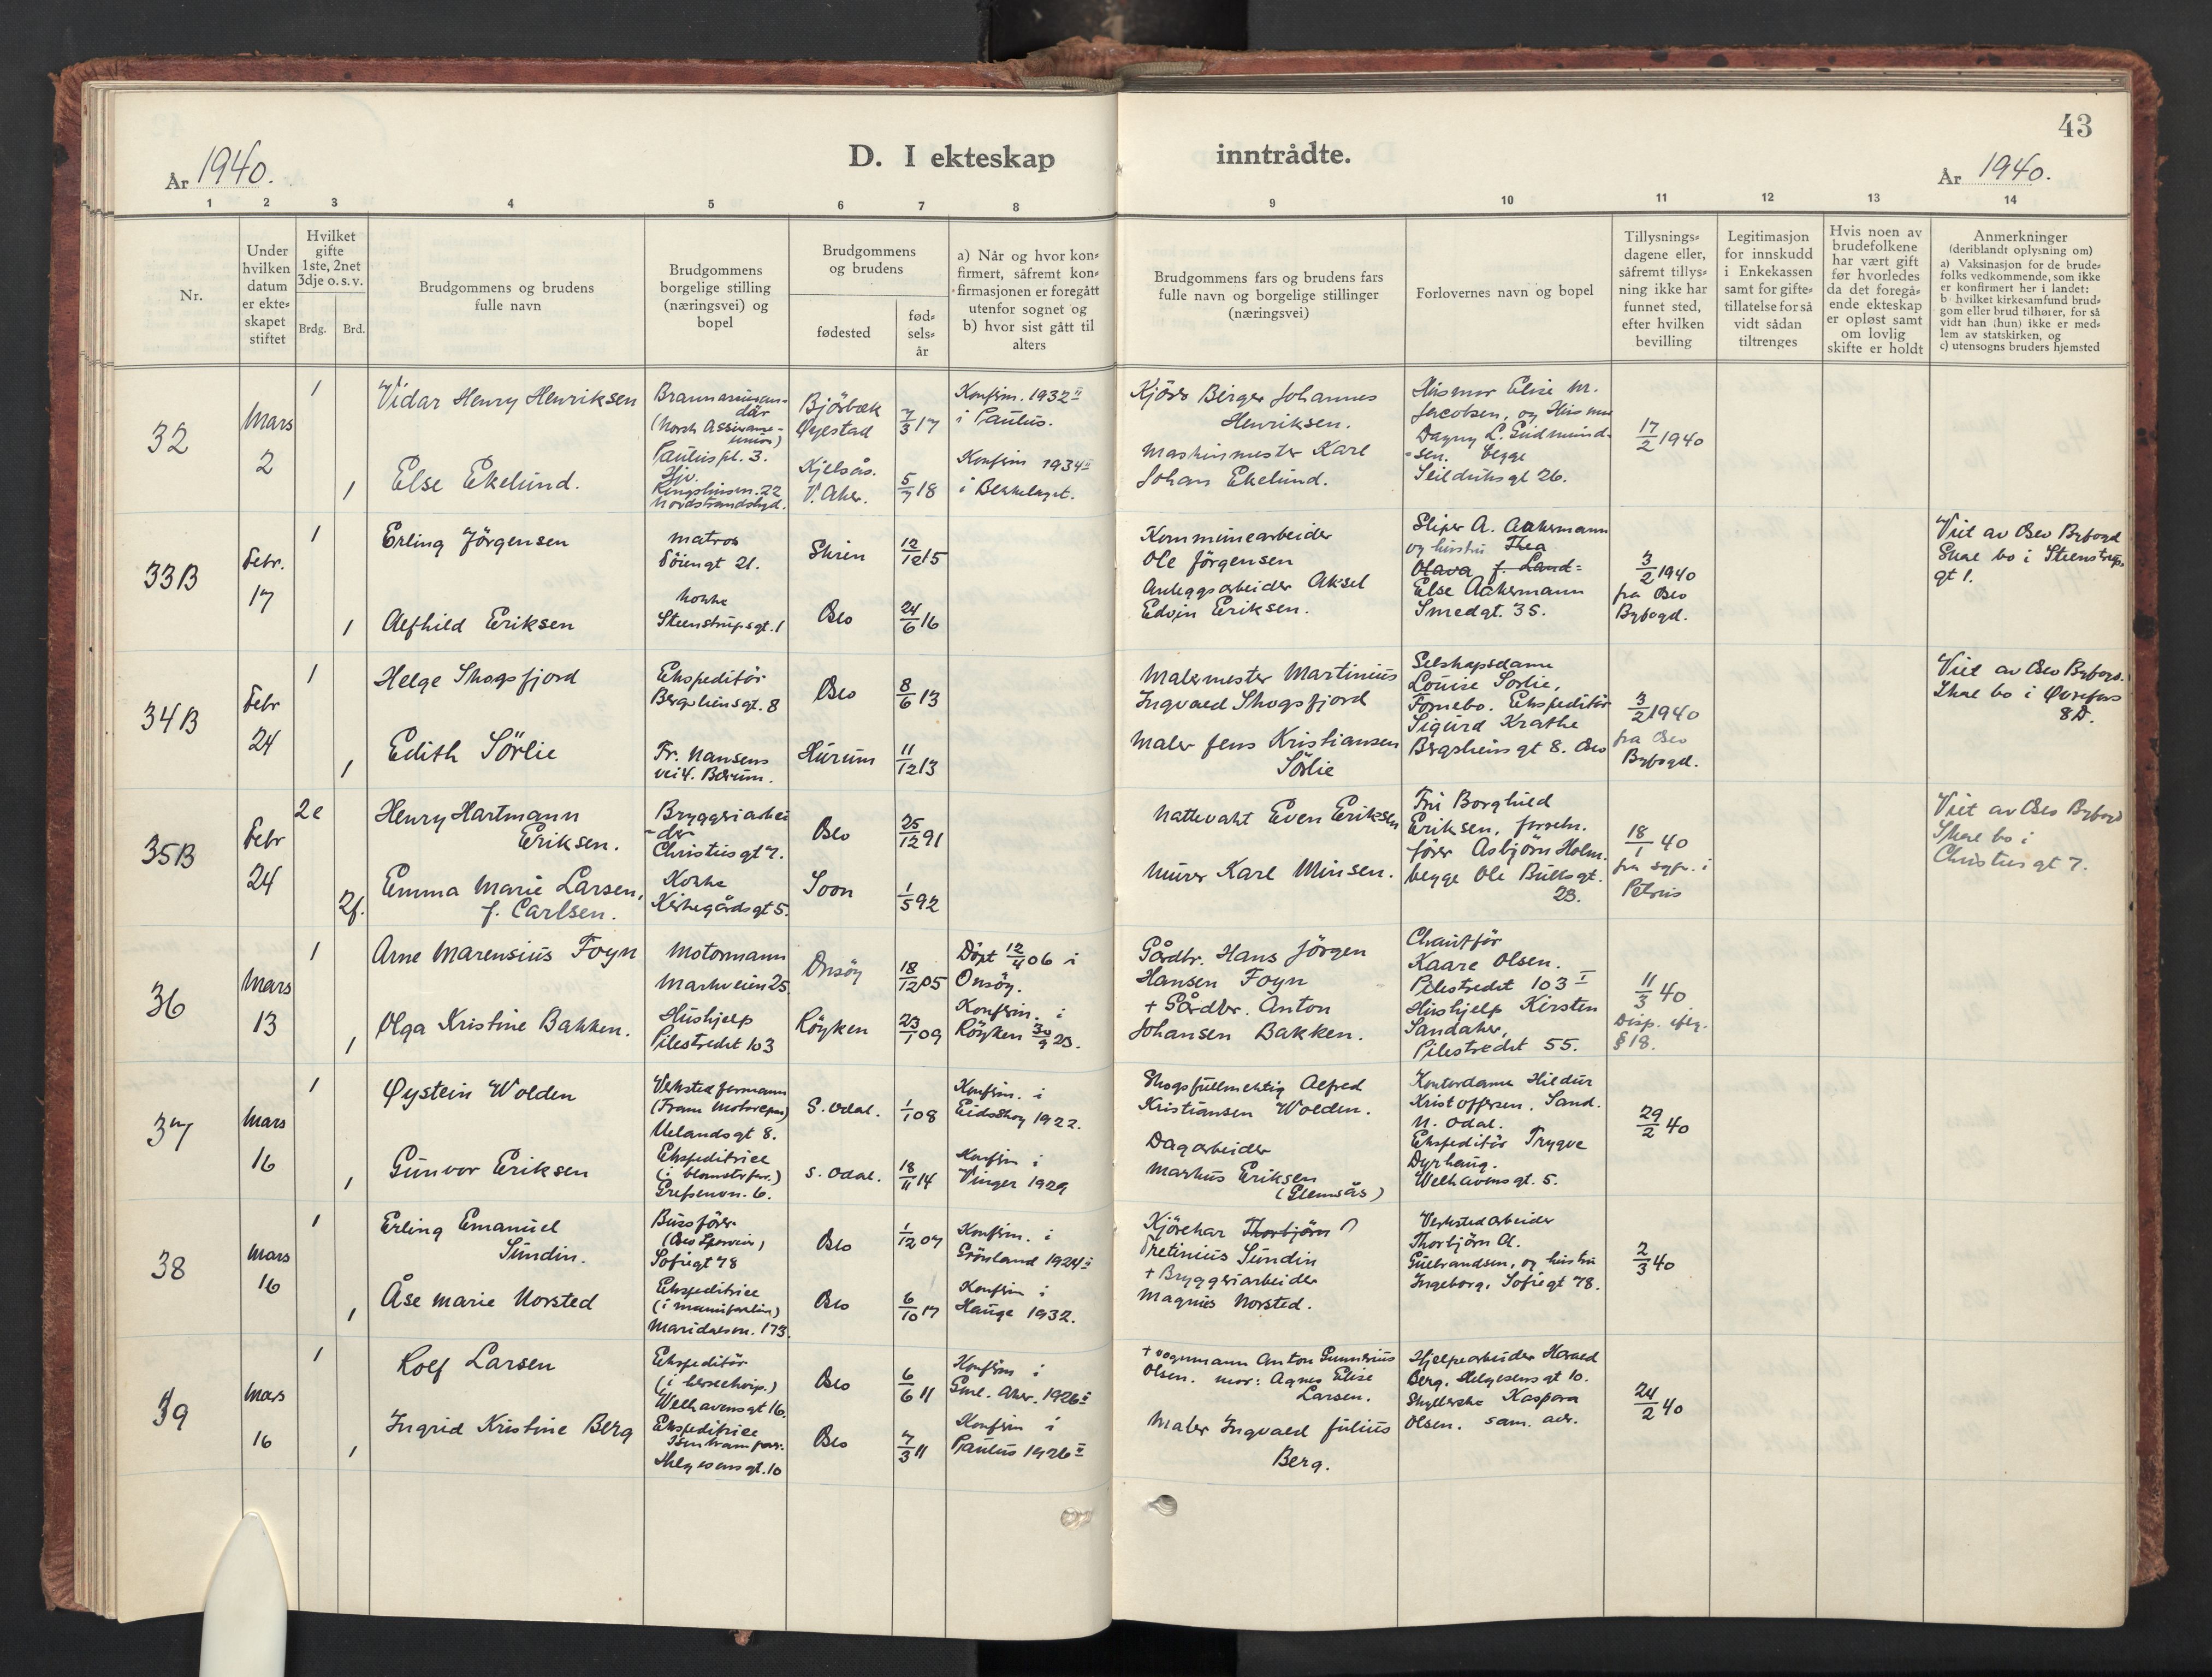 43
D. I ekteskap inntrådte.
År 1940.
År 1940.
1 2 3 4 5 6 7 8 9 10 11 12 13 14
Nr.
Under
hvilken
datum
er ekte-
skapet
stiftet
Hvilket
gifte
1ste, 2net
3dje o. s. v.
Brdg. Brd.
Brudgommens og brudens
fulle navn
Brudgommens
borgelige stilling
(næringsvei) og
bopel
Brudgommens
og brudens
fødested
fød-
sels-
år
a) Når og hvor kon-
firmert, såfremt kon-
firmasjonen er foregått
utenfor sognet og
b) hvor sist gått til
alters
Brudgommens fars og brudens fars
fulle navn og borgelige stillinger
(næringsvei)
Forlovernes navn og bopel
Tillysnings-
dagene eller,
såfremt tillys-
ning ikke har
funnet sted,
efter hvilken
bevilling
Legitimasjon
for innskudd
i Enkekassen
samt for gifte-
tillatelse for så
vidt sådan
tiltrenges
Hvis noen av
brudefolkene
har vært gift
før hvorledes
da det foregå-
ende ekteskap
er opløst samt
om lovlig
skifte er holdt
Anmerkninger
(deriblandt oplysning om)
a) Vaksinasjon for de brude-
folks vedkommende, som ikke
er konfirmert her i landet:
b hvilket kirkesamfund brud-
gom eller brud tilhører, for så
vidt han (hun) ikke er med-
lem av statskirken, og
c) utensogns bruders hjemsted
32
Mars
2
1
1
Vidar Henry Henriksen
Else Ekelund.
(Norsk Assuranse-
union)
Paulus pl. 3.
Hjv.
Nordstrandshgd.
Bjørbæk
Øyestad
Kjelsås.
V. Aker.
7/3 17
5/7 18
Konfirm. 1932 II
i Paulus.
Konfirm 1934 II
i Bekkelaget.
Kjörs Birger Johannes
Henriksen.
Maskinmester Karl
Johan Ekelund.
Husmor Elise M.
Jacobsen, og Husmor
Dagny L. Gudmund-
sen. begge
Seilduksgt 26.
17/2 1940
33B
Febr.
17
1
1
Erling Jörgensen
Alfhild Eriksen
Matros
Söiengt 21.
Kokke
Steenstrupsgt. 1
Skien
Oslo
12/12 15
24/6 16
Kommunearbeider
Ole Jörgensen
Anleggsarbeider Aksel
Edvin Eriksen.
Sliper A. Aakermann
og hustru Thea
Olava f. Land-
Else Aakermann
Smedgt. 35.
3/2 1940
fra Oslo
Byfogd.
Viet av Oslo Byfogd
Skal bo i Steenstrups
gt 1.
34B
Febr
24
1
1
Helge Skogsfjord
Edith Sörlie
Ekspeditör
Bergsliensgt. 8
Fr. Nansens
vei 4. Bærum.
Oslo
Hurum
8/6 13
11/12 13
Malermester Martinius
Ingvald Skogsfjord
Maler Jens Kristiansen
Sörlie
Selskapsdame
Louise Sörlie,
Fornebo. Ekspeditör
Sigurd Krathe
Bergsliensgt 8. Oslo
3/2 1940
fra Oslo
Byfogd.
Viet av Oslo Byfogd.
Skal bo i Øvrefoss
8D.
35B
Febr
24
2e
2f.
Henry Hartmann
Eriksen.
Emma Marie Larsen,
f. Carlsen.
Bryggeriarbei
-der
Christiesgt 7.
Kokke
Kirkegårdsgt 5.
Oslo
Soon
25/12 91
1/5 92
Nattevakt Even Eriksen
Murer Karl Minsen.
Fru Borghild
Eriksen, forretn.
förer Asbjörn Holm.
begge Ole Bullsgt.
23.
18/1 40
fra sogn. i
Petrus
Viet av Oslo Byfogd
Skal bo i
Christies gt 7.
36
Mars
13
1
1
Arne Marensius Foyn
Olga Kristine Bakken.
Motormann
Markveien 25.
Hushjelp
Pilestredet 103
Onsöy
Röyken
18/12 05
23/1 09
Döpt 12/4 06 i
Onsöy.
Konfirm. i
Röyken 30/9 23.
Gårdbr. Hans Jörgen
Hansen Foyn
+ Gårdbr. Anton
Johansen Bakken.
Chauffør
Kaare Olsen.
Pilestredet 103 I
Hushjelp Kirsten
Sandaker,
Pilestredet 55.
11/3 40
Disp. iflg.
§ 18.
37
Mars
16
1
1
Øystein Wolden
Gunvor Eriksen
Verkstedformann
(Fram Motorrep.)
Uelandsgt 8.
Ekspeditrice
(i blomsterforr.)
Grefsenvn. 6.
S. Odal.
S. Odal.
1/1 08
18/11 14
Konfirm. i
Eidskog 1922.
Konfirm i
Vinger 1929
Skogsfullmektig Alfred
Kristiansen Wolden.
Dagarbeider
Markus Eriksen
(Glemsås)
Kontordame Hildur
Kristoffersen, Sand.
N. Odal.
Ekspeditör Trygve
Dyrhaug.
Welhavensgt. 5.
29/2 40
38
Mars
16
1
1
Erling Emanuel
Sundin.
Åse Marie Norsted
Bussförer
(Oslo Sporveier)
Sofiegt 78
Ekspeditrice
Maridalsvn. 173.
Oslo
Oslo
1/12 07
6/10 17
Konfirm. i
Grönland 1924 II
Konfirm i
Hauge 1932.
Kjörekar Thorbjörn
Fretinius Sundin
+ Bryggeriarbeider
Magnus Norsted.
Verkstedarbeider
Thorbjörn A.
Gulbrandsen, og hustru
Ingeborg, Sofiegt 78.
2/3 40
39
Mars
16
1
1
Rolf Larsen
Ingrid Kristine Berg
Ekspeditör
Welhavensgt 16.
Ekspeditrice
Helgesensgt. 10
Oslo
Oslo
6/6 11
7/3 11
Konfirm i
Gml. Aker. 1926 II
Konfirm i
Paulus 1926 II
+ Vognmann Anton Gunnerius
Olsen. mor: Agnes Elise
Larsen.
Maler Ingvald Julius
Berg.
Hjelpearbeider Harald
Berg, Helgesensgt 10.
Skyllerske Kaspara
Olsen. sam. adr.
24/2 40